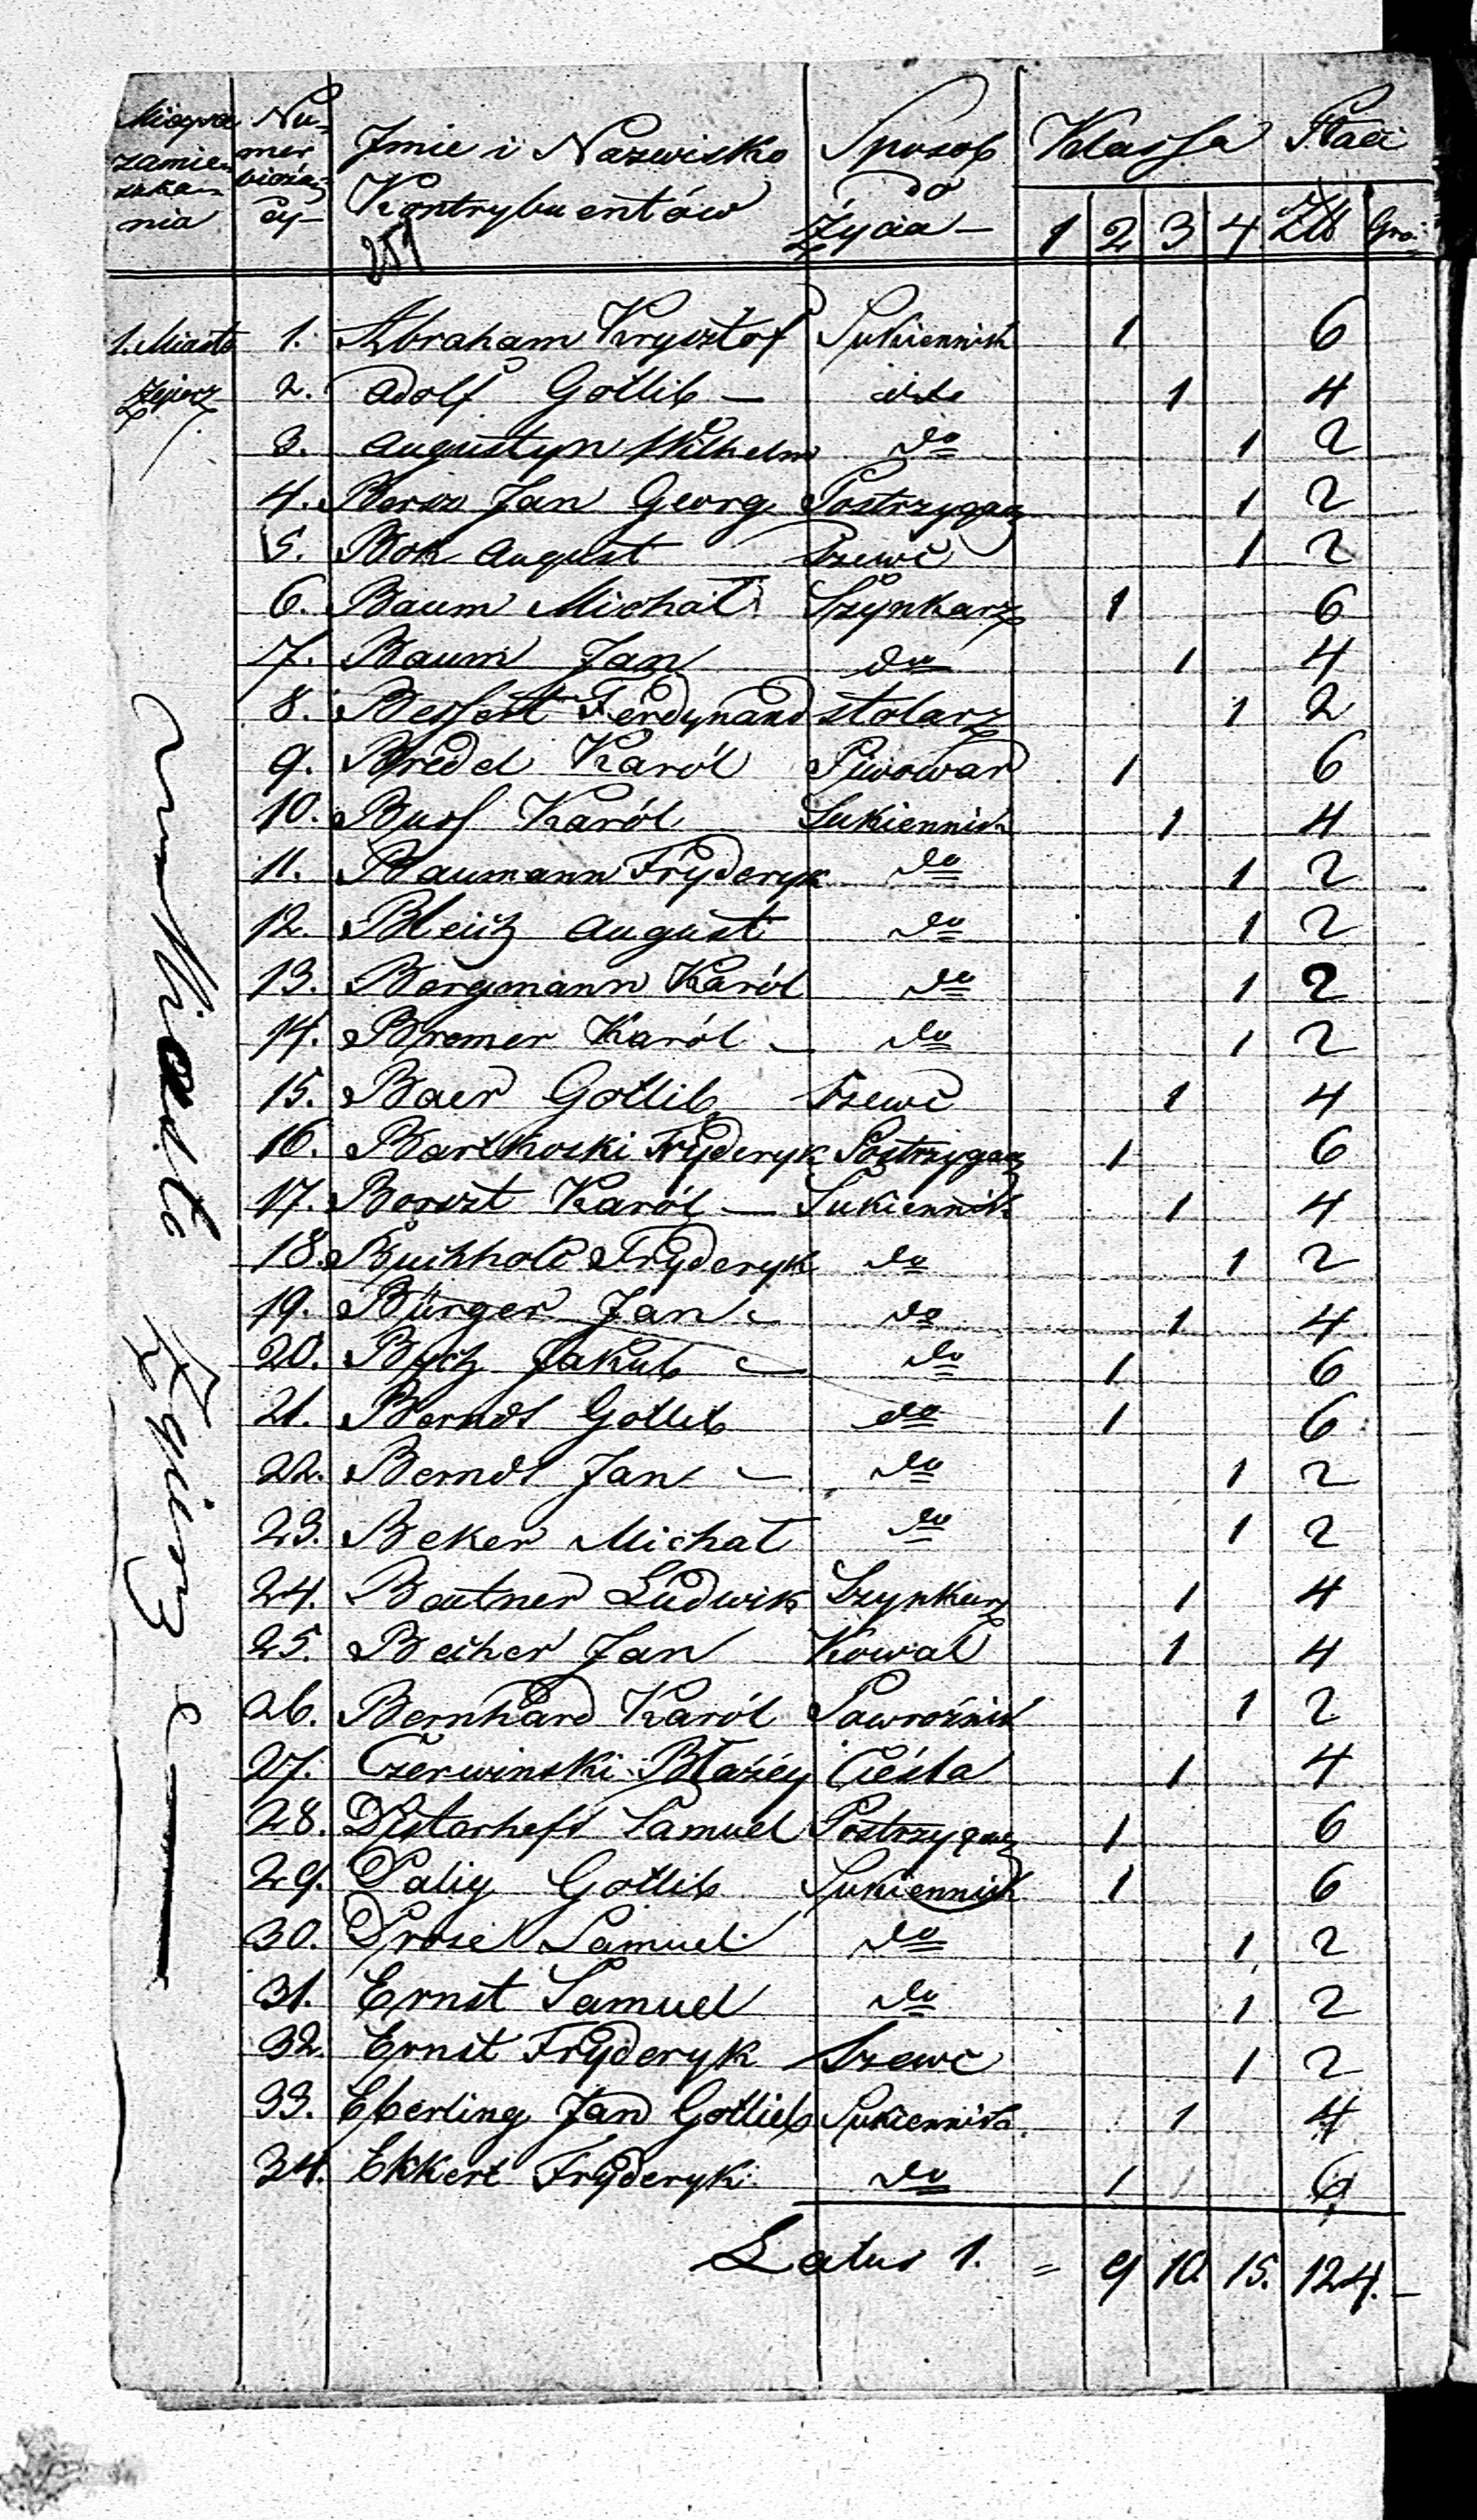 Mieysce zamieszkania
Numer bieżący
Jmie i Nazwisko Kontrybuentów
Sposob do Życia —
Klassa Płaci
1 2 3 4 Złb Gro:
251
1. Miasto Zgierz
1. Abraham Krysztof Sukiennik 1 6
2. Adolf Gottlib — 1 4
3. Augustyn Wilhelm do 1 2
4. Jan Georg Postrzygacz 1 2
5. Bok August Szewc 1 2
6. Baum Michał Szynkarz 1 6
7. Baum Jan do 1 4
8. Ferdynand stolarz 1 2
9. Bredel Karól Piwowar 1 6
10. Karól Sukiennik 1 4
11. Baumann Fryderyk do 1 2
12. August do 1 2
13. Bergmann Karól do 1 2
14. Bremer Karól — do 1 2
15. Baer Gottlib Szewc 1 4
16. Bartkoski Fryderyk Postrzygacz 1 6
17. Borszt Karól — Sukiennik 1 4
18. Buchholc Fryderyk do 1 2
19. Bürger Jan — do 1 4
20. Jakub — do 1 6
21. Berndt Gottlib do 1 6
22. Berndt Jan — do 1 2
23. Beker Michał do 1 2
24. Ludwik Szynkarz 1 4
25. Jan Kowal 1 4
26. Bernhard Karól Powroźnik 1 2
27. Czerwinski Błażéy Cieśla 1 4
28. Samuel Postrzygacz 1 6
29. Gottlib Sukiennik 1 6
30. Samuel do 1 2
31. Ernst Samuel do 1 2
32. Ernst Fryderyk Szewc 1 2
33. Eberling Jan Gottlieb Sukiennik 1 4
34. Ekkert Fryderyk do 1 6
Latus 1. = 9 10. 15. 124. —
Miasto Zgierz